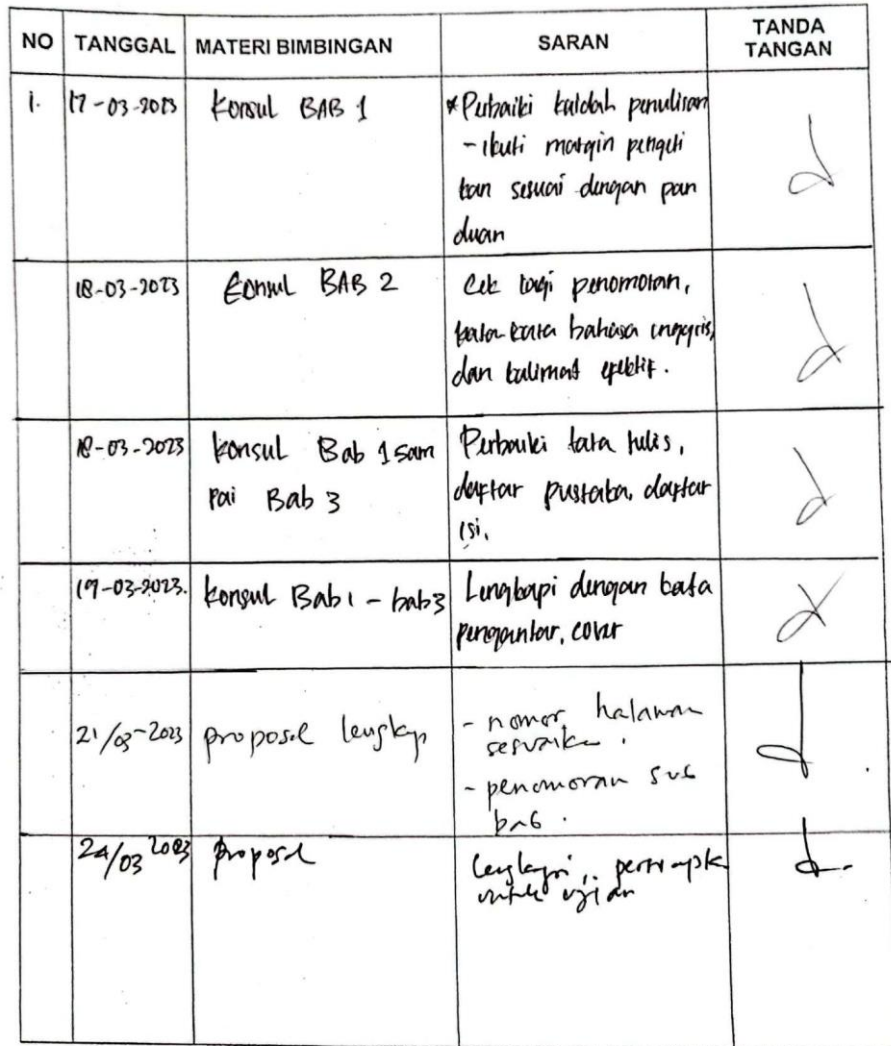 NO TANGGAL MATERI BIMBINGAN SARAN TANDA TANGAN
1. 17-03-2023 Konsul BAB 1 *Perbaiki kaidah penulisan
- ikuti margin pengeti
kan sesuai dengan pan
duan
18-03-2023 Konsul BAB 2 Cek lagi penomoran,
kata-kata bahasa inggris,
dan kalimat efektif.
18-03-2023 Konsul Bab 1 sam Perbaiki tata tulis,
pai Bab 3 daftar pustaka, daftar
isi.
19-03-2023. konsul Bab 1 - bab 3 Lengkapi dengan kata
pengantar, cover
21/03-2023 proposal lengkap - nomor halaman
sesuaikan.
- penomoran sub
bab.
24/03 2023 proposal lengkapi,
untuk ujian